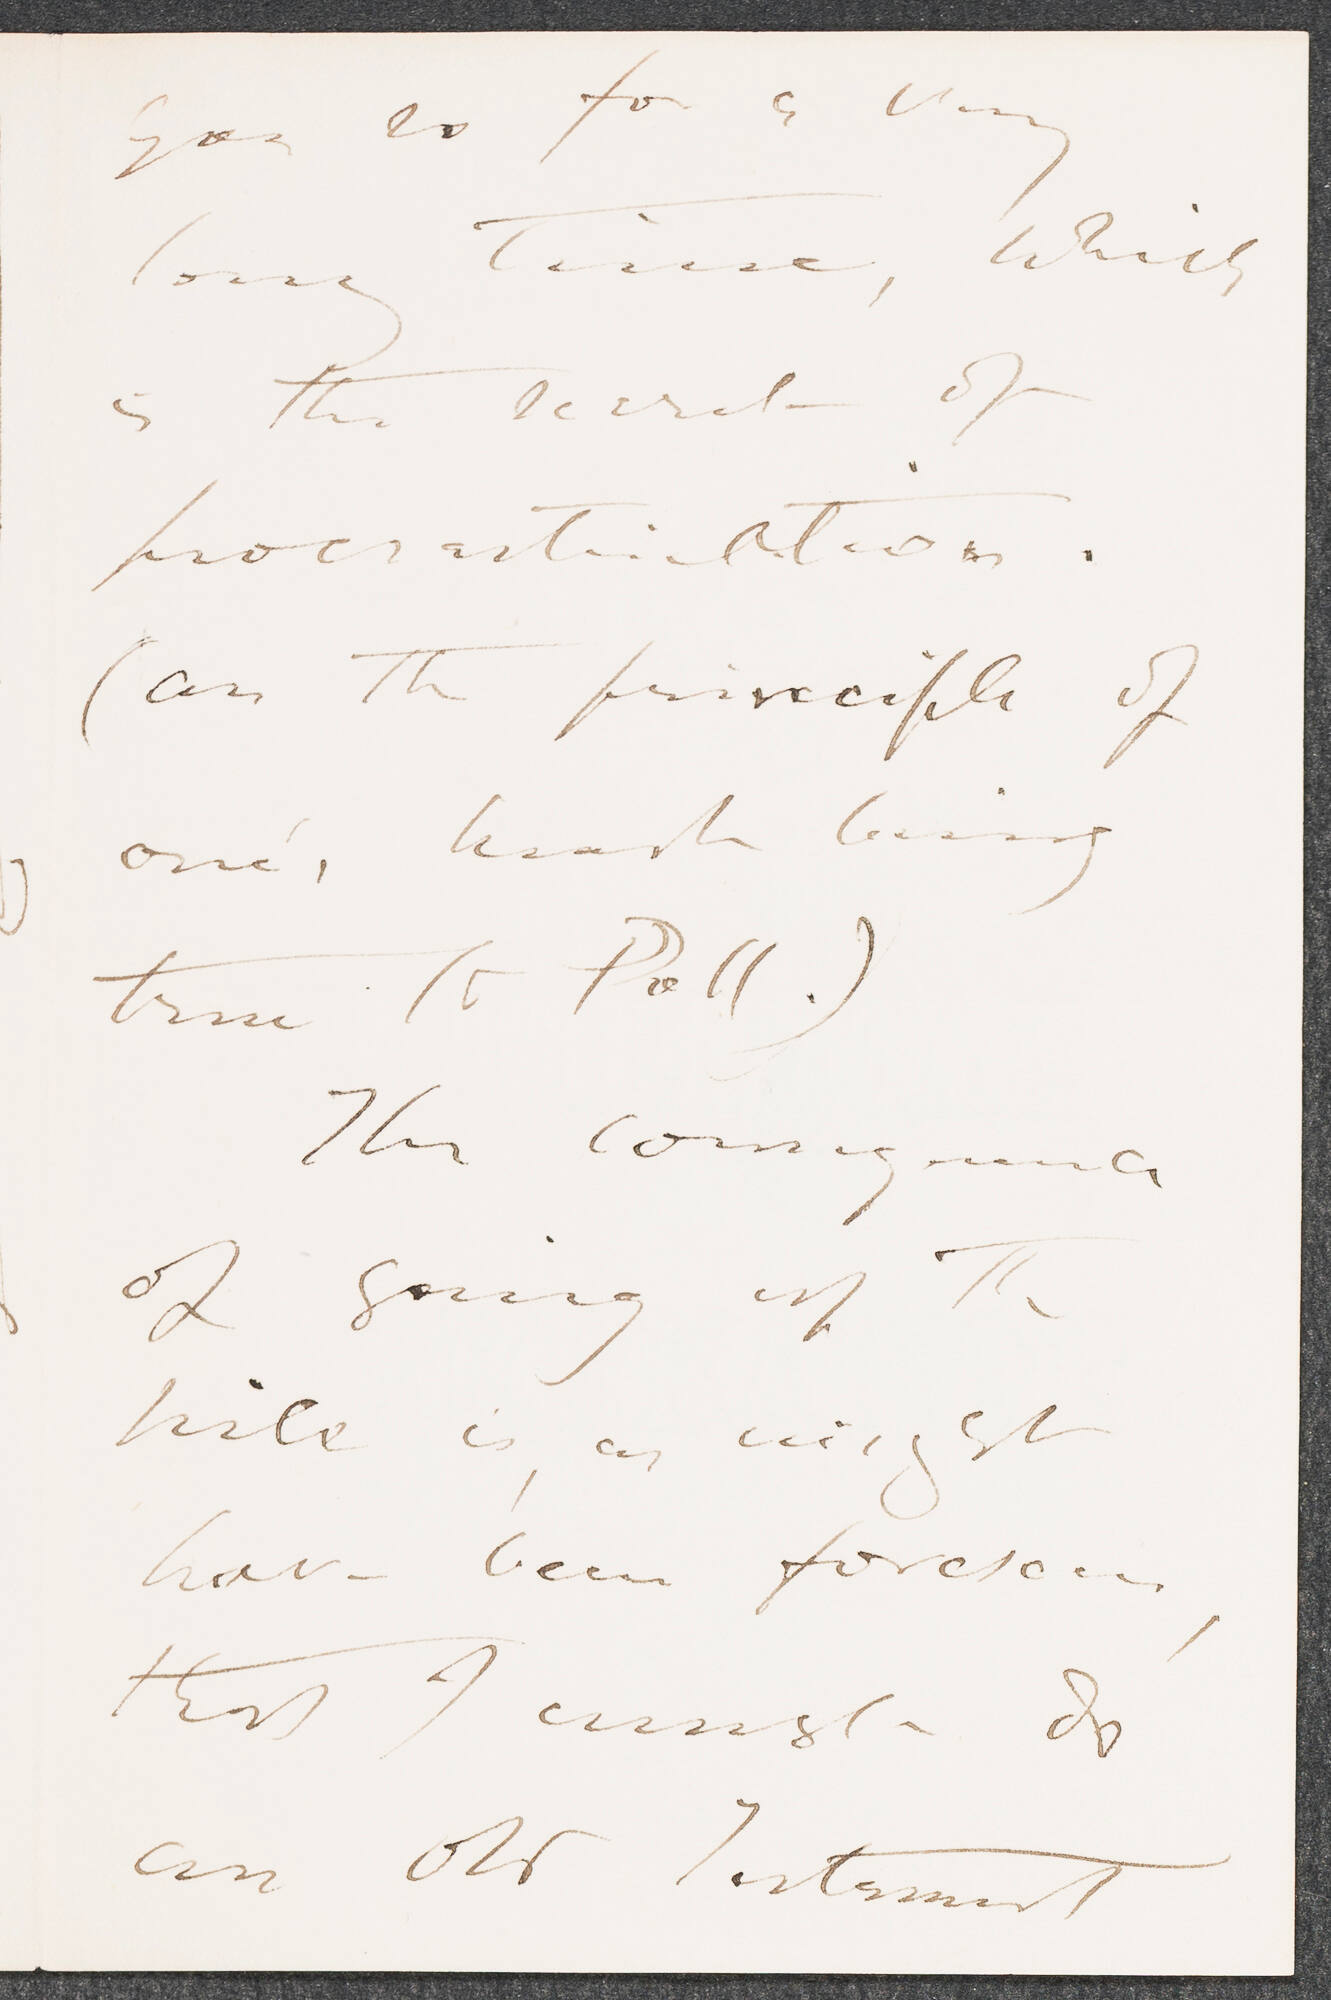 you so for a very
long time, which
is the secret of
procrastination.
(on the principle of
one's heart being
true to Poll.)
The consequence
of going up the
hill is, as might
have been foreseen,
that I must do
an Old Testament